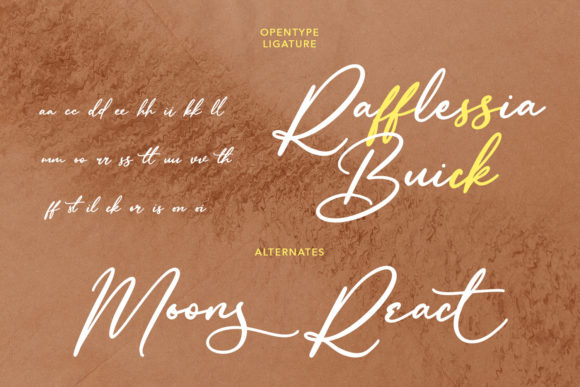 OPENTYPE
LIGATURE
aa cc dd ee hh ii kk ll
mm oo rr ss tt uu vv th
ff st il ck or is on oi
Rafflessia
Buick
ALTERNATES
Moons React